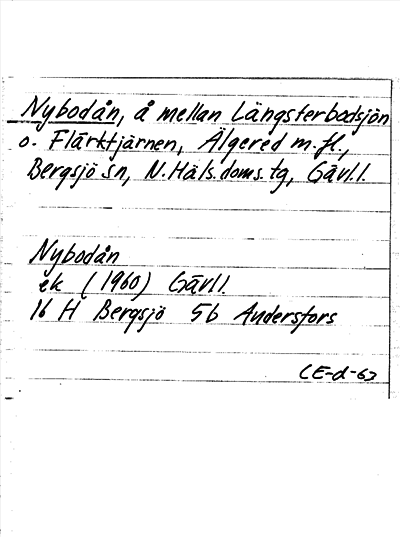 Nybodån, å mellan Längsterbodsjön
o. Flärktjärnen, Älgered m.fl.,
Bergsjö sn, N.Häls.doms.tg, Gävl.l.
Nybodån
ek (1960) Gävl.l.
16 H Bergsjö 5b Andersfors
CE-d-63